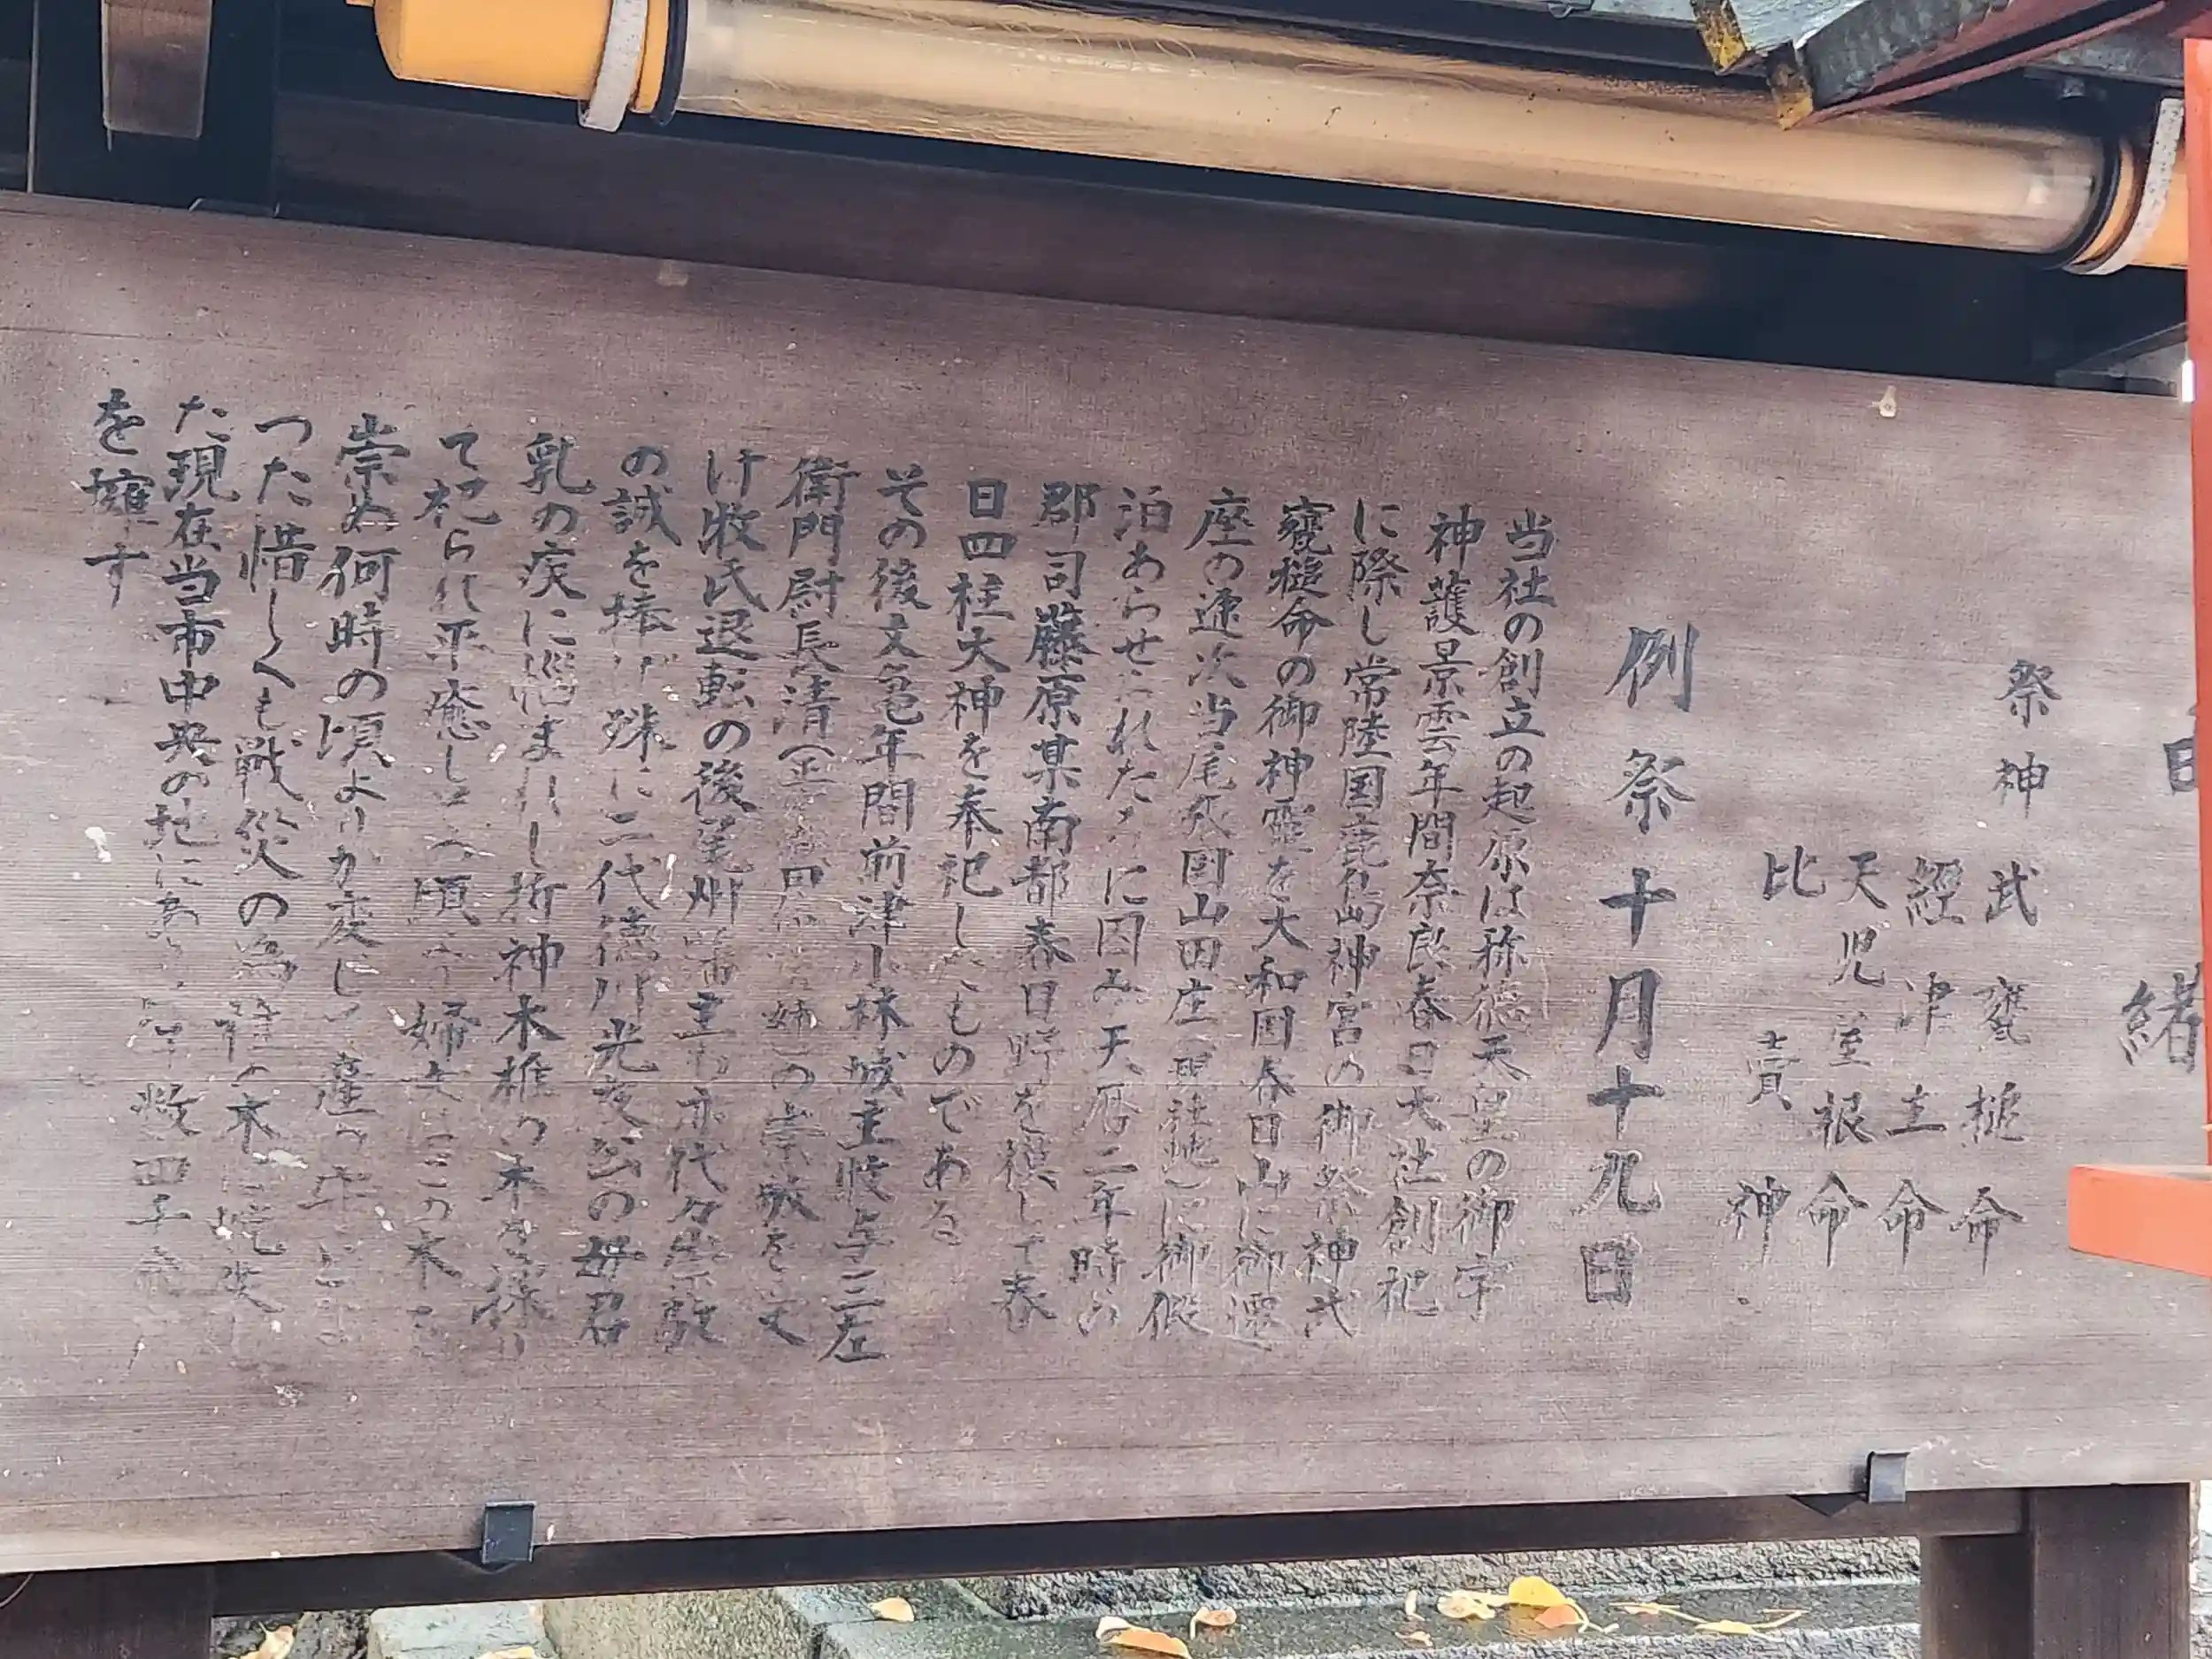 由緒
祭神 武甕槌命
経津主命
天児屋根命
比売神
例祭十月十九日
当社の創立の起原は称徳天皇の御宇
神護景雲年間奈良春日大社創祀
に際し常陸国鹿島神宮の御祭神武
甕槌命の御神霊を大和国春日山に御遷
座の途次当尾張国山田庄(現社地)に御仮
泊あらせられたるに因み天暦二年時の
郡司藤原某南都春日野を模して春
日四柱大神を奉祀したものである
その後文亀年間前津小林城主牧与三左
衛門尉長清の崇敬を受
け牧氏退転の後尾州藩主も亦代々崇敬
の誠を捧げ殊に二代徳川光友公の母君
乳の疾に悩まれし折神木椎の木を採り
て祀られ平癒し 頃 婦女はこの木を
崇め何時の頃よりか変じ 産の木と
つた惜しくも戦災の為 木 焼失
た現在当市中央の地に 数四千
を擁す